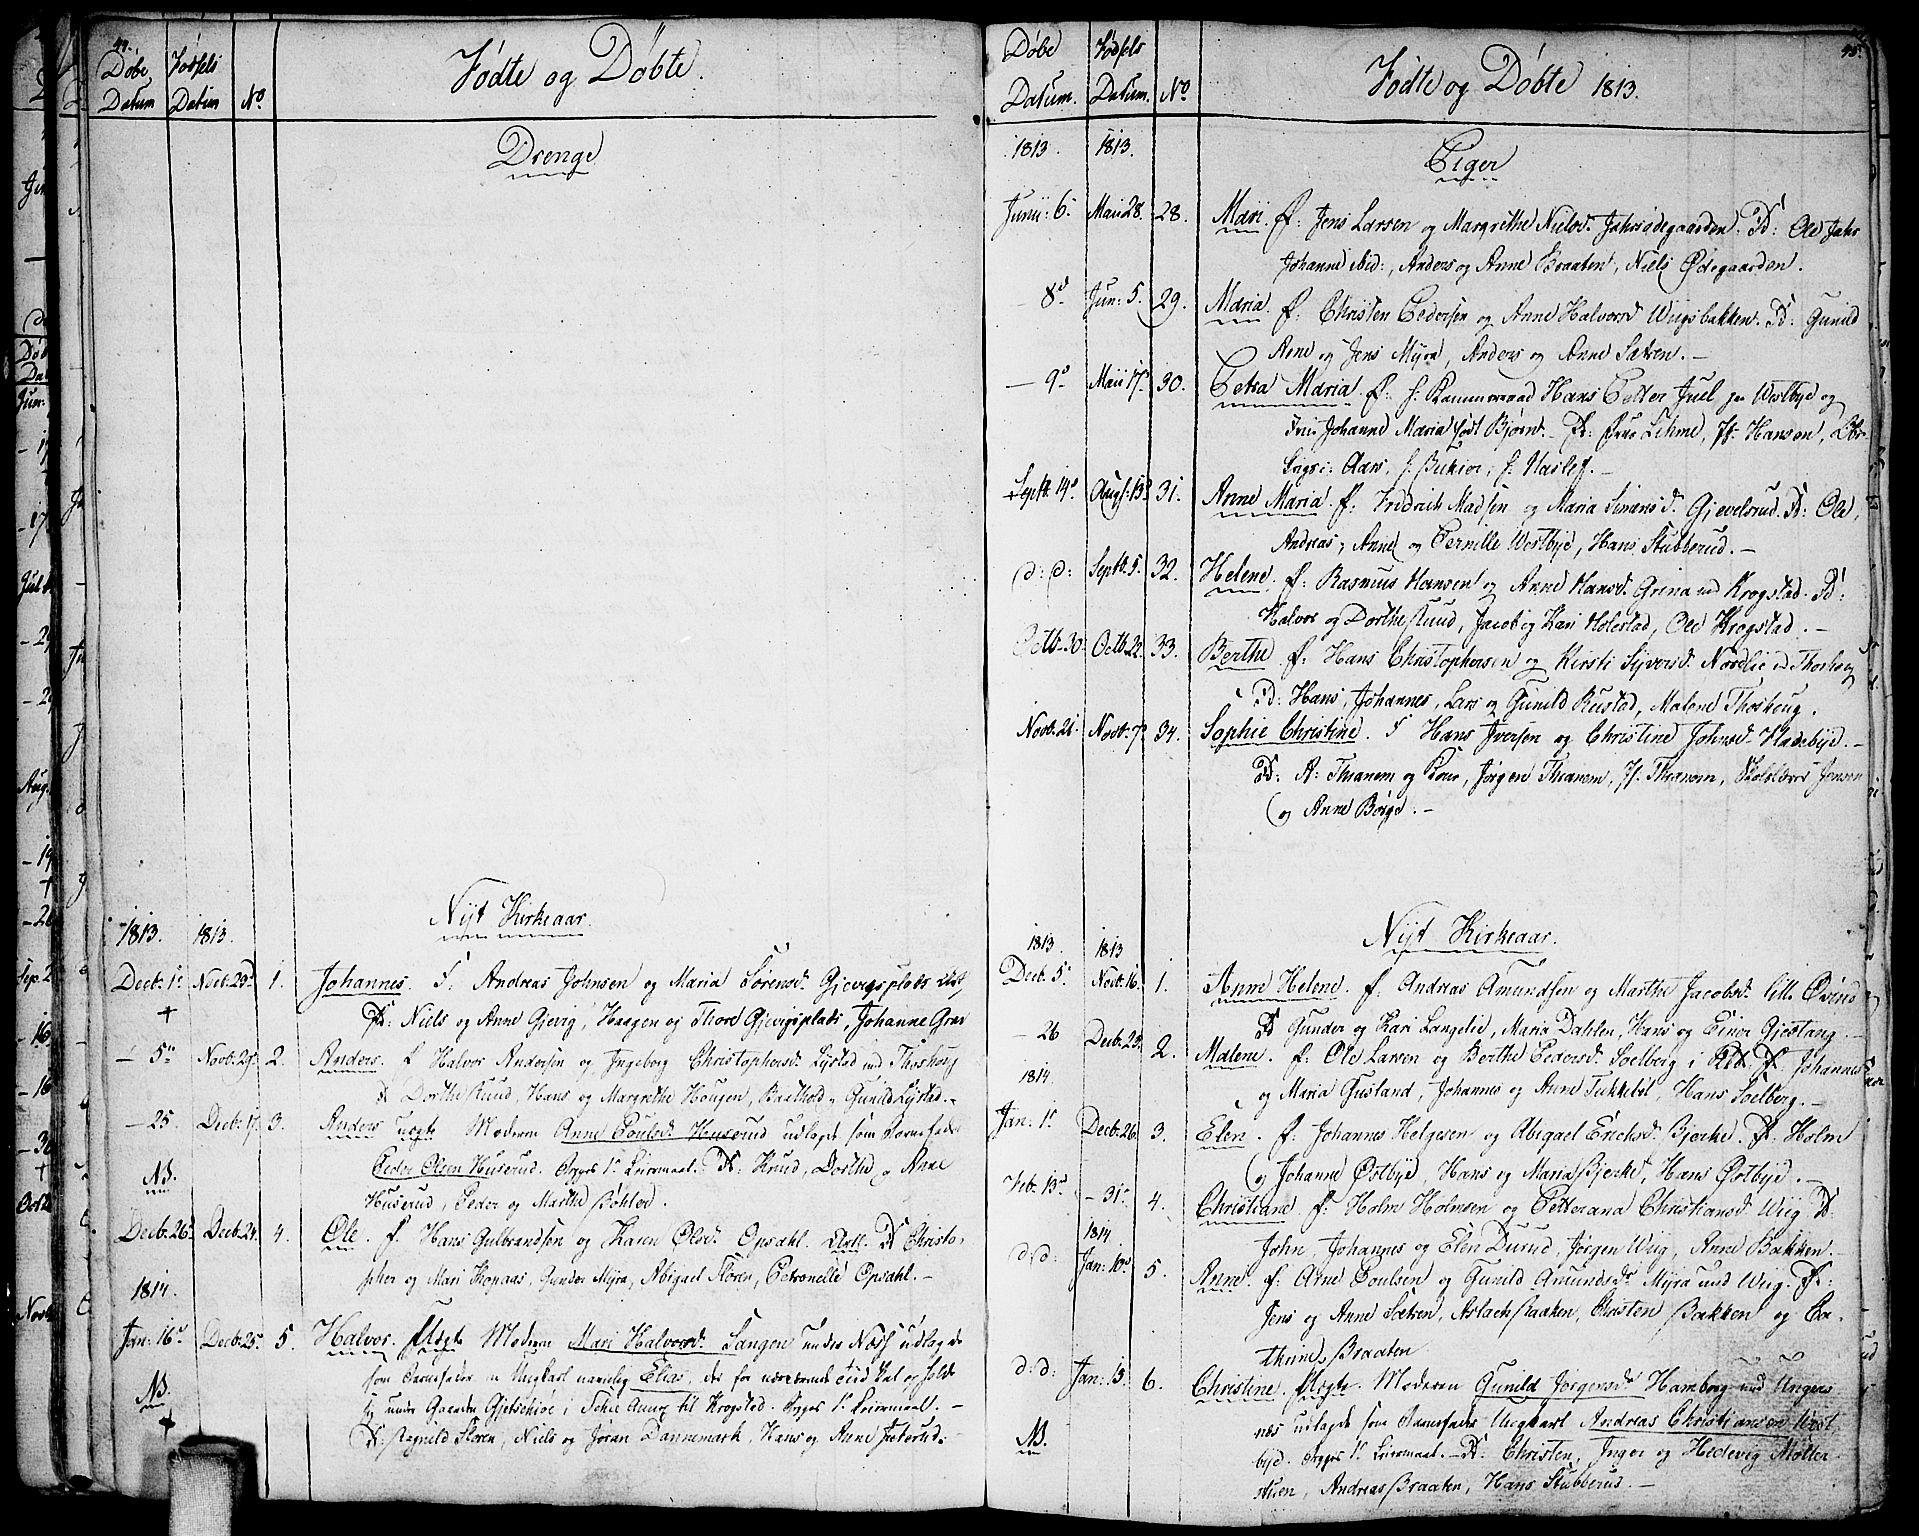 44.
Døbe Fødsels
Datum Datum No
Fødte og Døbte.
Drenge
Nyt Kirkeaar.
1813. 1813.
Decb: 1. Novb: 23. 1. Johannes. F. Andreas Johnsen og Maria Sørensd. Gjevigsplads
Fd: Niels og Anne Gjevig, Haagen og Thore Gjevigsplads, Johanne Grav
– 5. Novb: 25. 2. Anders. F. Halvor Andersen og Ingeborg Christophersd. Lystad und Thoshoug
Fd. Dorthe Ruud, Hans og Margrethe Hougen, Barthold og Gunild Lystad.
– 25. Decb: 17. 3. Anders uægte Moderen Anne Poulsd. Huserud udlagde som Barnefader
NB. Peder Olsen Huserud. Begges 1ste Leiermaal. Fd: Knud, Dorthe og Anne
Huserud, Peder og Marthe Bøhler.
Decb: 26. Decb: 24. 4. Ole. F. Hans Gulbrandsen og Karen Olsd. Opsahl. Fd. Christo-
pher og Mari Kopaas, Gunder Myra, Abigael Floren, Petronelle Opsahl. –
1814.
Jan: 16. Decb: 25. 5. Halvor. Uægte Moderen Mari Halvorsd. Sangen under Næss udlagde
som Barnefader en Ungkarl navnlig Elias, der for nærværende Tiid skal opholde
NB. sig under Gaarden Gjetschiøe i Annex til Krogstad. Begges 1. Leiermaal. –
Fd: Ragnild Floren, Niels og Jøran Dannemark, Hans og Anne Feterud. –
45.
Døbe Fødsels
Datum. Datum. No
Fødte og Døbte 1813.
1813. 1813.
Piger
Junii: 6. Maii 28. 28. Mari. F: Jens Larsen og Margrethe Nielsd. Jahrsødegaarden. Fd: Ole Jahr
Johanne ibid:, Anders og Anne Braaten, Niels Ødegaarden.
– 8. Jun: 5. 29. Maria. F: Christen Pedersen og Anne Halvorsd. Wiigsbakken. Fd: Gunild
Arne og Jens Myra, Anders og Anne Sætren. –
– 9. Maii 17. 30. Petra Maria. F: H. Kammerraad Hans Petter Juel paa Westbye og
Frue Johanne Maria født Bjørn. – Fd: Frue Lihme, Jf: Hansen,
Aars, H: Butier, H: Haslef. –
Septb. 14. Augs: 13. 31. Anne Maria. F: Fridrich Madsen og Maria Simensd. Gjevelsrud. Fd: Ole,
Andreas, Anne og Pernille Westbye, Hans Stubberud. –
d: d: Septb. 5. 32. Helene. F: Rasmus Hansen og Anne Hansd. Grina und Krogstad. Fd:
Halvor og Dorthe Ruud, Jacob og Kari Holestad, Ole Krogstad. –
Octb. 30. Octb. 22. 33. Berthe F: Hans Christophersen og Kirsti Syversd. Nordlie und Thoshoug
Fd: Hans, Johannes, Lars og Gunild Rustad, Malene Thoshoug.
Novb. 21. Novb: 7. 34. Sophie Christine. F Hans Iversen og Christine Johnsd. Hadebye. –
Fd: A: Thranem og Kone, Jørgen Thranem, Jf. Thranem, Skolelærer Jensen
og Anne Borge. –
Nyt Kirkeaar.
1813. 1813
Decb. 5. Novb. 16. 1. Anne Helene. F. Andreas Amundsen og Marthe Jacobsd. lille Øvind
Fd Gunder og Kari Langelie, Maria Dahlen, Hans og Einer Gjestang. –
– 26 Decb. 23. 2. Malene. F: Ole Larsen og Berthe Pedersd. Soelberg i Eid. Fd. Johannes
og Maria Gusland, Johannes og Anne Tukkebøl, Hans Soelberg. –
1814.
Jan: 1. Decb: 26. 3. Elen. F: Johannes Helgesen og Abigael Erichsd. Bjerke. Fd: Holm
og Johanne Østbye, Hans og Maria Bjerke, Hans Østbye. –
Feb: 13. – 31. 4. Christiane F: Holm Holmsen og Petterana Christiansd. Wiig Fd:
John, Johannes og Elen Durud, Jørgen Wiig, Anne Bakken. –
1814
d: d: Jan: 10. 5. Anne. F: Arne Poulsen og Gunild Amundsd. Myra und Wiig. Fd:
Jens og Anne Sætren, Aslach Braaten, Christen Bakken og Ca-
thrine Braaten
d: d: Jan: 13. 6. Christine. Uægte. Moderen Gunild Jørgensd. Hamborg und Unger-
næs udlagde som Barnefader Ungkarl Andreas Christiansen West-
NB. bye. Begges 1. Leiermaal. – Fd: Christen, Inger og Hedevig Møller-
stuen, Andreas Braaten, Hans Stubberud. –